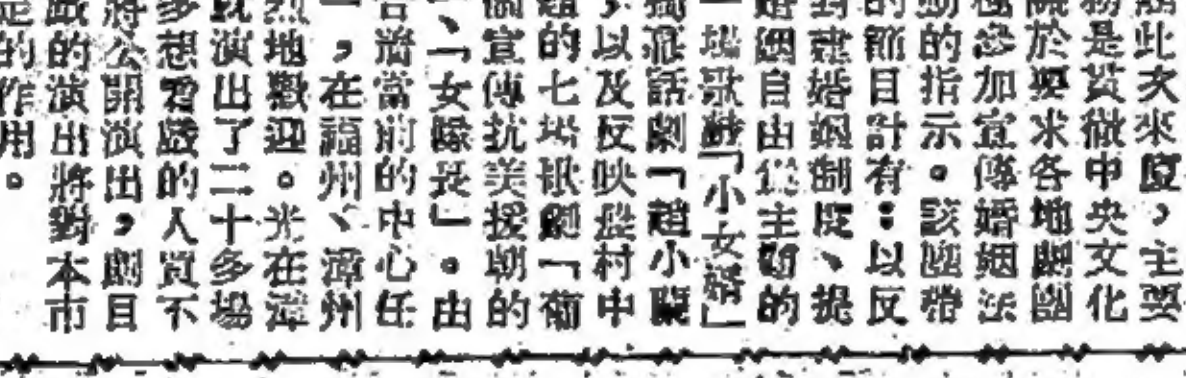 此次來厦，主要
是貫徹中央文化
於要求各地劇團
極參加宣傳婚姻法
動的指示。該團帶
的節目計有：以反
對封建婚姻制度、提
婚姻自由為主題的
場歌劇「小女婿」
獨幕話劇「趙小蘭
，以及反映農村中
題的七場歌劇「葡
個宣傳抗美援朝的
、「女隊長」。由
當前的中心任
，在福州、漳州
烈地歡迎。光在漳
就演出了二十多場
多想看戲的人買不
將公開演出，劇目
的演出將對本市
定的作用。